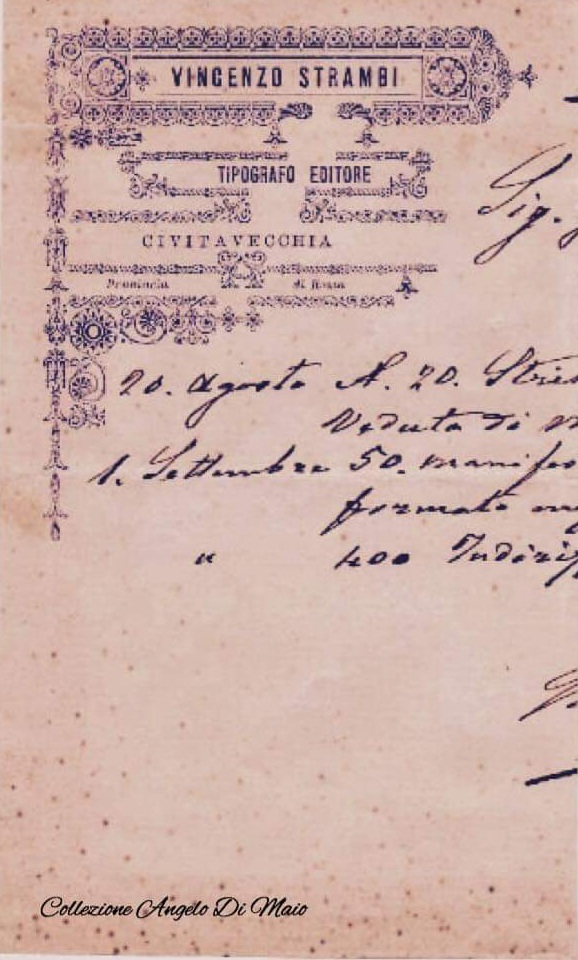 VINCENZO STRAMBI
TIPOGRAFO EDITORE
CIVITAVECCHIA
Provincia di Roma
Sig.
20. Agosto N. 20. Stris
Veduta di
1. Settembre 50. manifes
formato
" 400 Indiriz
Collezione Angelo Di Maio